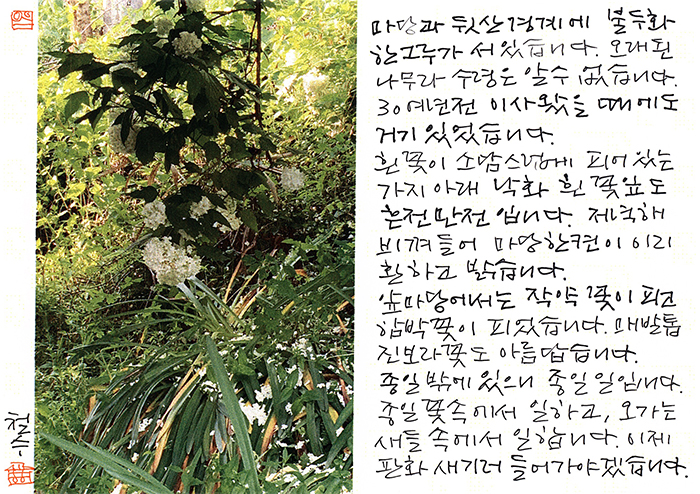 마당과 뒷산 경계에 불두화
한그루가 서있습니다. 오래된
나무라 수령은 알수 없습니다.
30여년전 이사왔을 때에도
거기 있었습니다.
흰꽃이 소담스럽게 피어있는
가지 아래 낙화 흰꽃잎도
흔전만전입니다. 저녁해
비껴들어 마당한켠이 이리
환하고 밝습니다.
앞마당에서는 작약꽃이 피고
함박꽃이 피었습니다. 매발톱
진보라꽃도 아름답습니다.
종일 밖에 있으니 종일 일입니다.
종일 꽃속에서 일하고, 오가는
새들 속에서 일합니다. 이제
판화 새기러 들어가야겠습니다.
철수